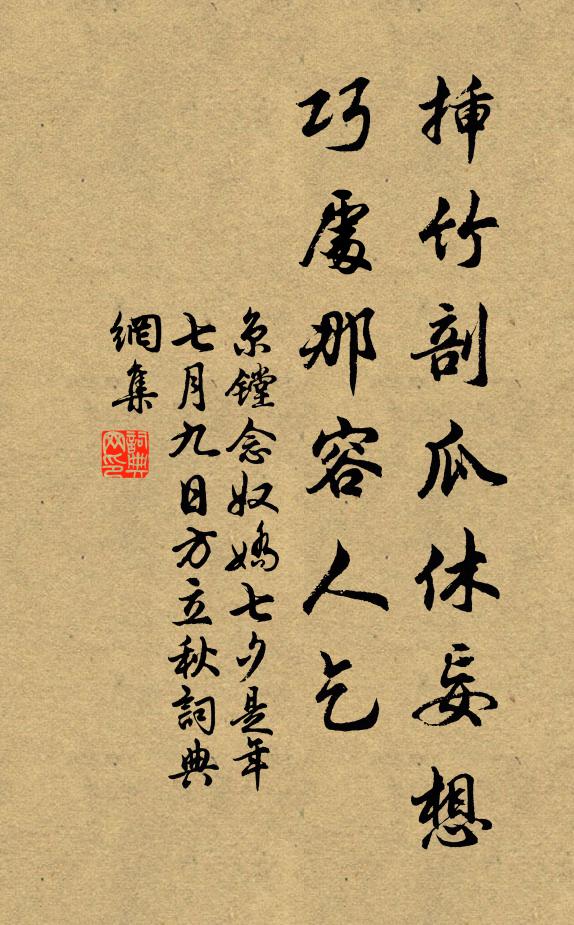 揷竹剖瓜休妄想
巧處那容人乞
京鏜念奴嬌七夕是年
七月九日方立秋詞典
網集
詞典網印